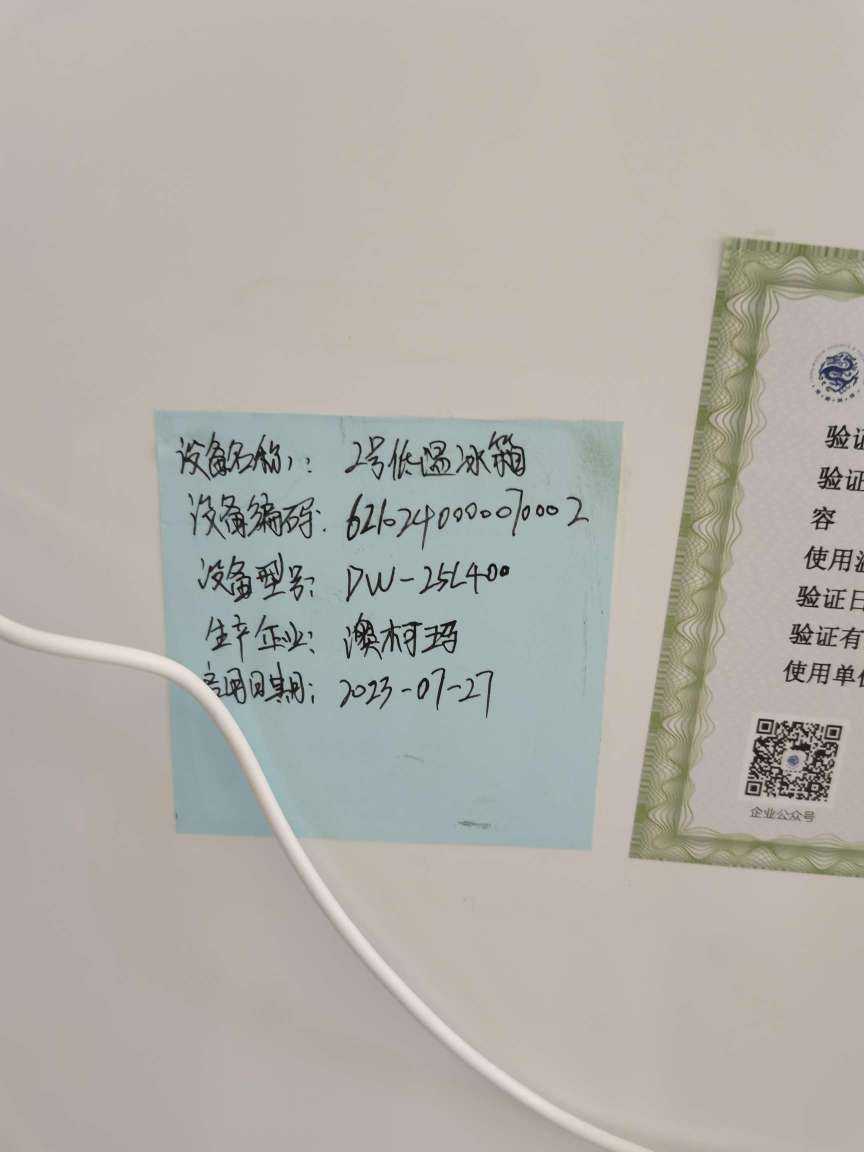 设备名称: 2号低温冰箱
设备编码: 6210240000070002
设备型号: DW-25L400
生产企业: 澳柯玛
启用日期: 2023-07-27
验证
验证
容
使用温
验证日
验证有
使用单位
企业公众号